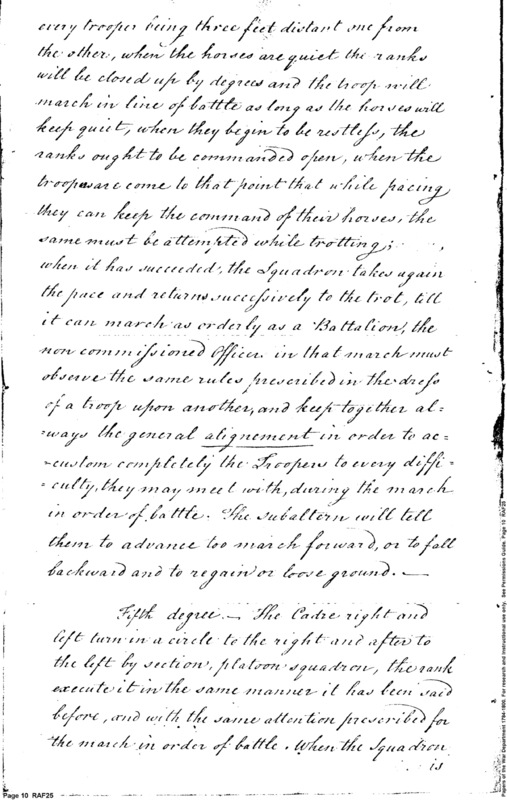 every trooper being three feet distant one from
the other, when the horses are quiet the ranks
will be closed up by degrees and the troop will
march in line of battle as long as the horses will
keep quiet, when they begin to be restless, the
ranks ought to be commanded open, when the
troopers are come to that point that while pacing
they can keep the command of their horses, the
same must be attempted while trotting;
when it has succeeded, the Squadron takes again
the pace and returns successively to the trot, till
it can march as orderly as a Battalion, the
non commissioned Officer in that march must
observe the same rules prescribed in the dress
of a troop upon another, and keep together al=
=ways the general alignement in order to ac=
=custom completely the Troopers to every diffi=
=culty, they may meet with, during the march
in order of battle. The subaltern will tell
them to advance too march forward, or to fall
backward and to regain or loose ground. —
Fifth degree — The Cadre right and
left turn in a circle to the right and after to
the left by section, platoon squadron, the rank
execute it in the same manner it has been said
before, and with the same attention prescribed for
the march in order of battle. When the Squadron
is
Page 10 RAF25
Papers of the War Department 1784-1800. For research and instructional use only. See Permissions Guide. Page 10 RAF25